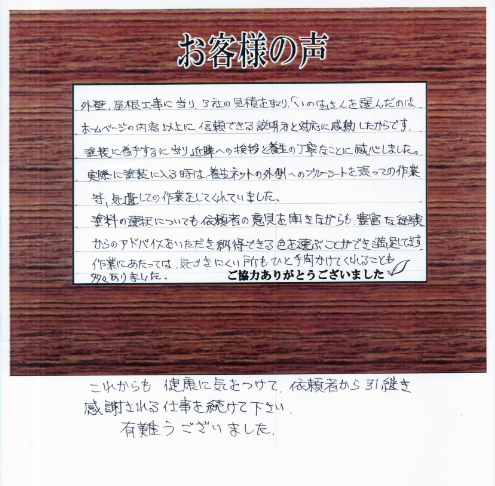 お客様の声
外壁、屋根工事に当り、3社の見積を取り、「いのはなさんを選んだのは
ホームページの内容以上に信頼できる説明力と対応に感動したからです。
塗装に着手するに当り近隣への挨拶と養生の丁寧なことに感心しました。
実際に塗装に入る時は、養生ネットの外側へのブルーシートを張っての作業
等、気遣しての作業をしてくれていました。
塗料の選択についても依頼者の意見を聞きながらも、豊富な経験
からのアドバイスをいただき納得できる色を選ぶことができ満足してます
作業にあたっては、気づきにくい所もひと手間かけてくれることも
多々ありました。
ご協力ありがとうございました
これからも 健康に気をつけて、依頼者から引継き
感謝される仕事を続けて下さい。
有難うございました。